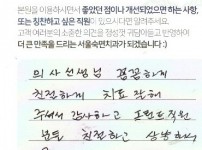 본원을 이용하시면서 좋았던 점이나 개선되었으면 하는 사항,
또는 칭찬하고 싶은 직원이 있으시다면 알려주세요.
고객 여러분의 소중한 의견을 정성껏 귀담아듣고 반영하여
더 큰 만족을 드리는 서울숙면치과가 되겠습니다 :)
의사선생님 꼼꼼하게
친절하게 치료 잘해
주셔서 감사하고 프런트직원
분도 친절하고 상냥하셔